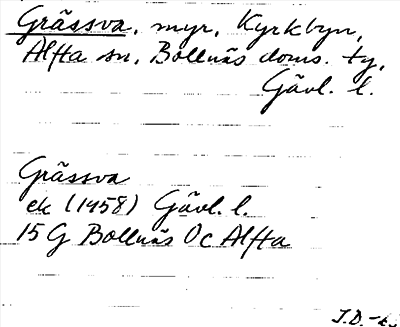 Grässva, myr, Kyrkbyn,
Alfta sn, Bollnäs doms. ty,
Gävl. l.
Grässva
ek (1958) Gävl. l.
15 G Bollnäs Oc Alfta